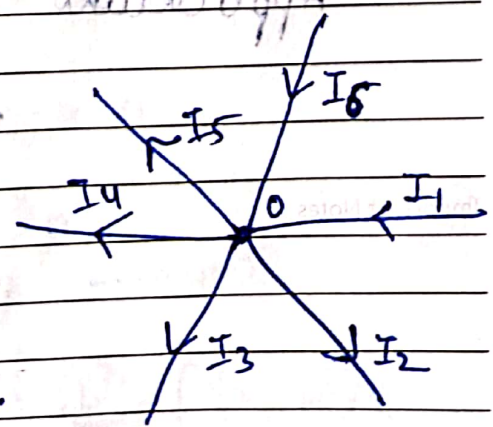 I6
I5
I4
O
I1
I3
I2